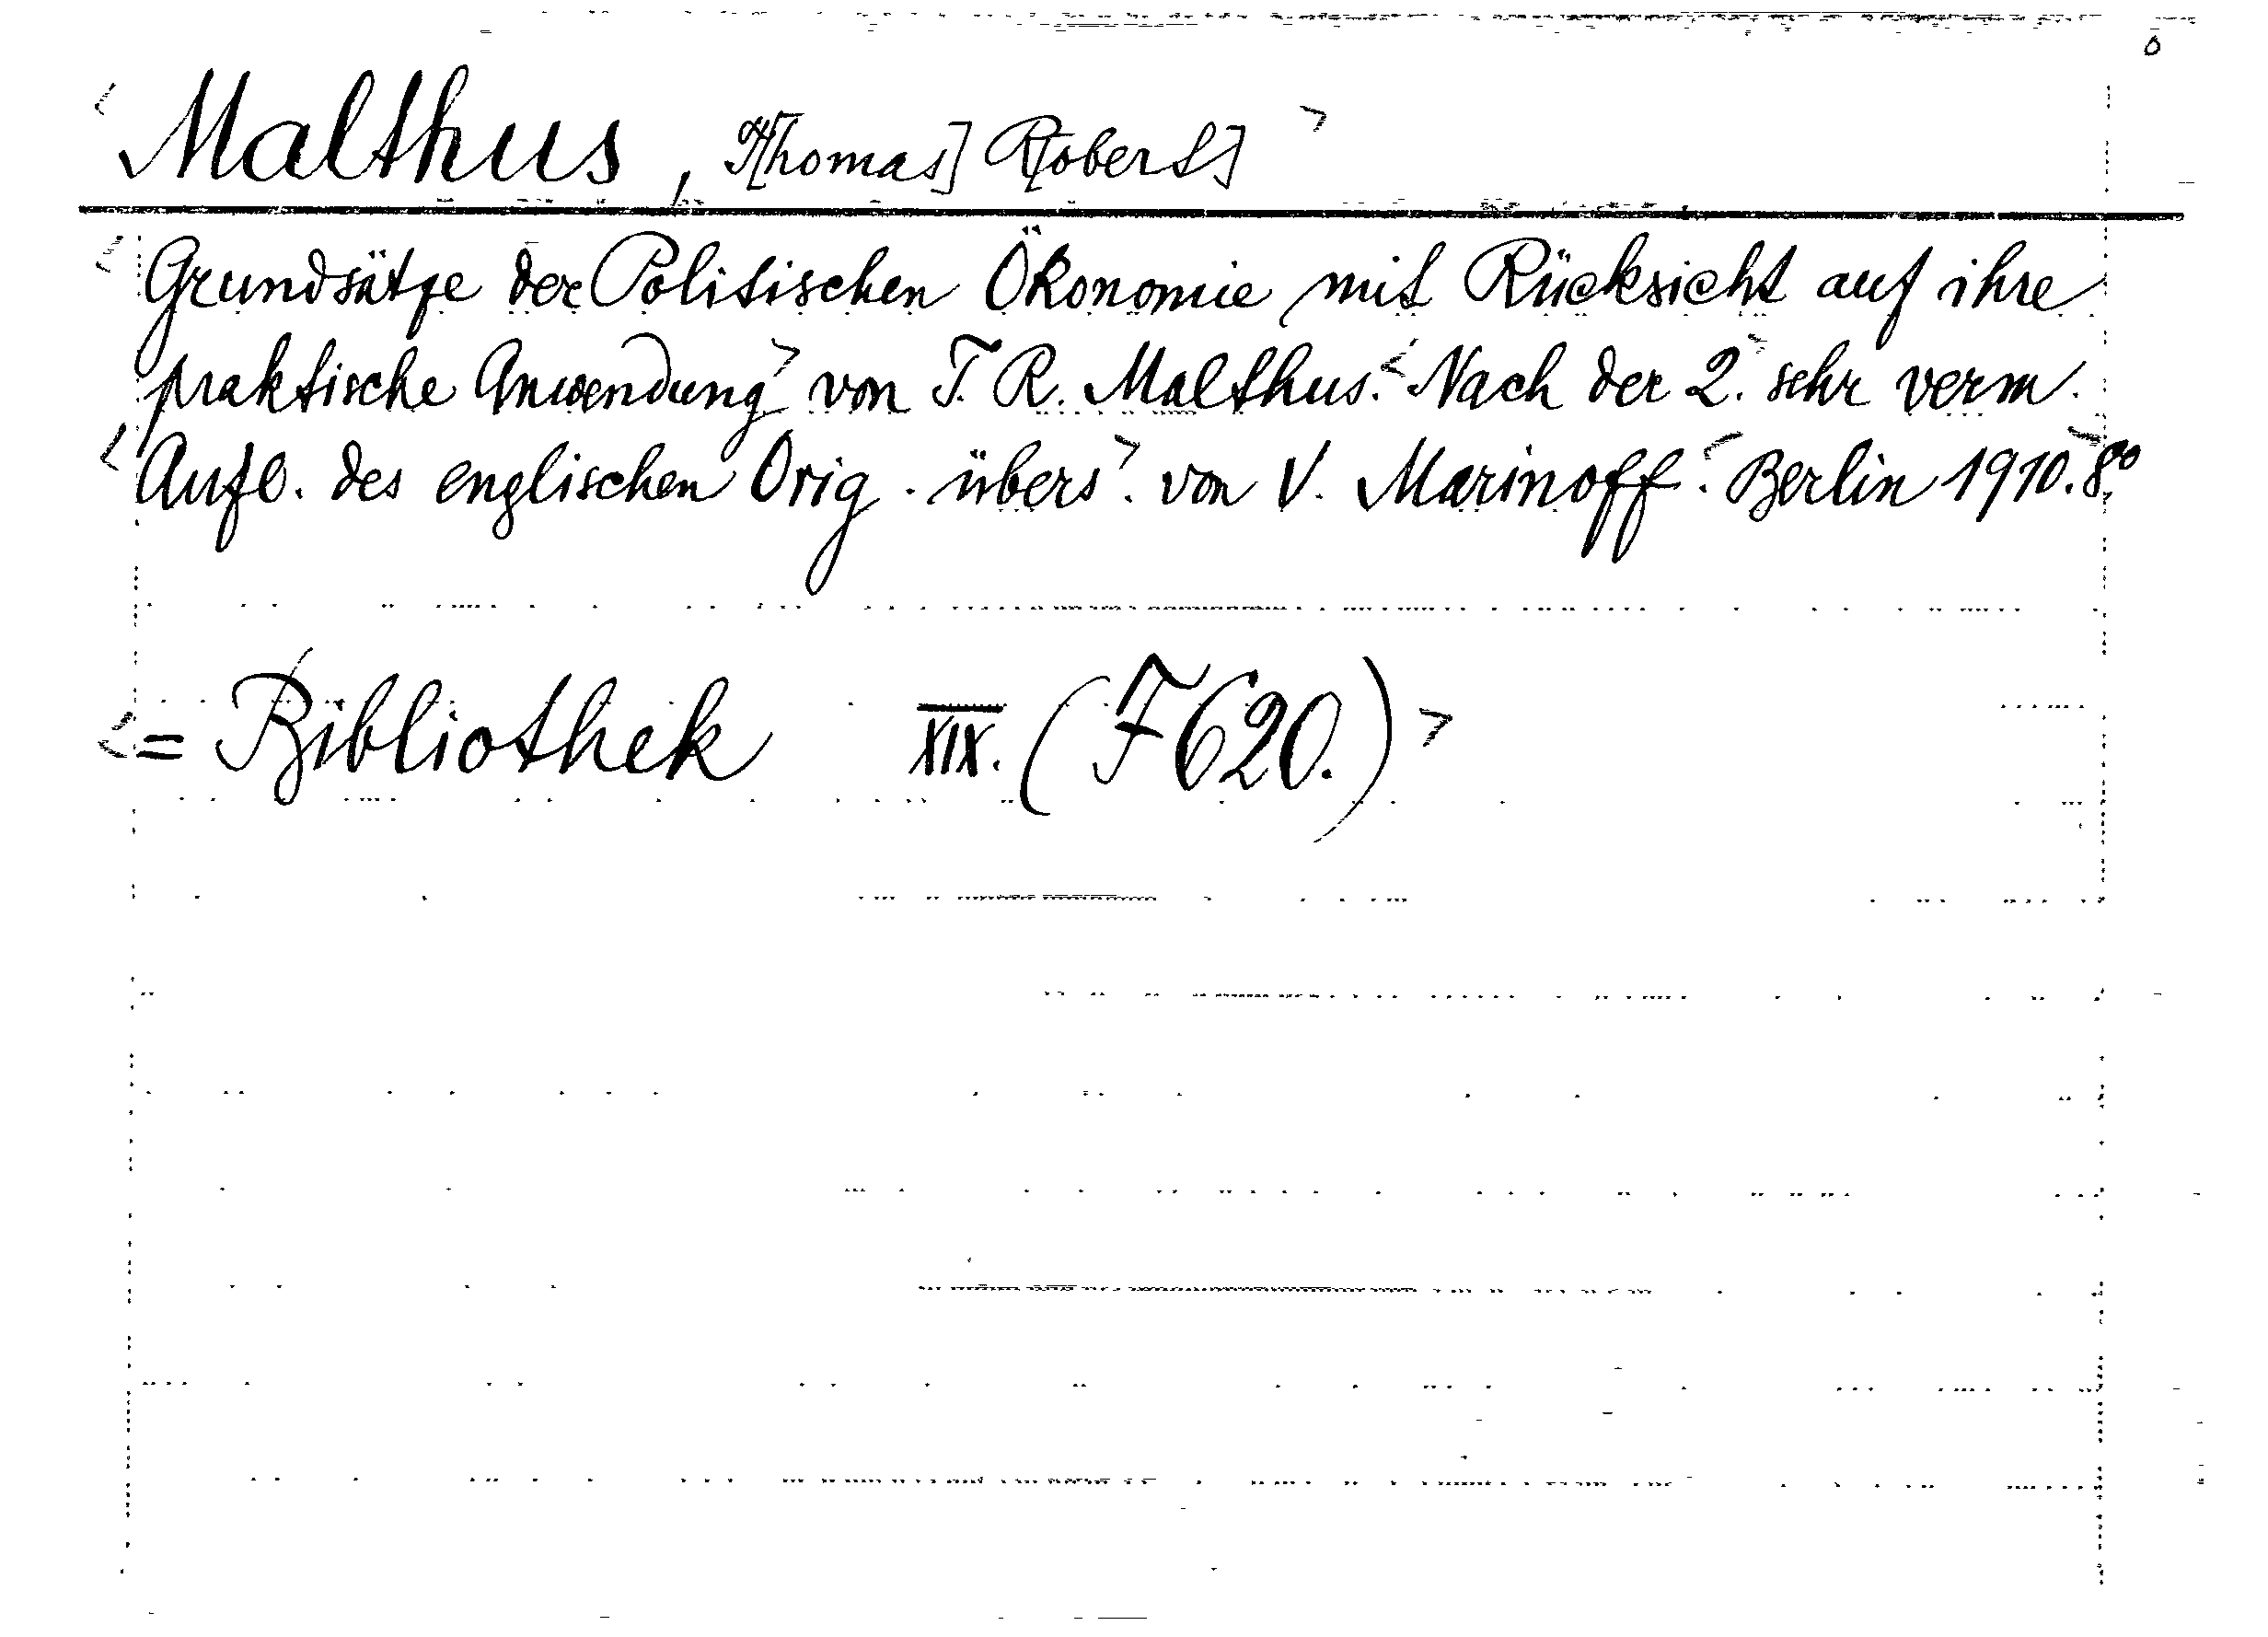 Malthus, T[homas] R[obert]
Grundsätze der Politischen Ökonomie mit Rücksicht auf ihre
praktische Anwendung von T. R. Malthus. Nach der 2. sehr verm.
Aufl. des englischen Orig. übers. von V. Marinoff. Berlin 1910. 8°.
= Bibliothek XIX. (F620.)